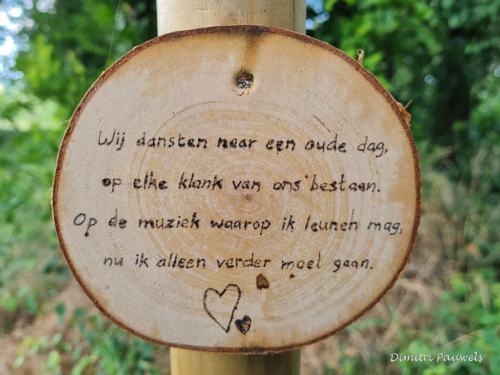 Wij dansten naar een oude dag,
op elke klank van ons bestaan.
Op de muziek waarop ik leunen mag,
nu ik alleen verder moet gaan.
Dimitri Pauwels